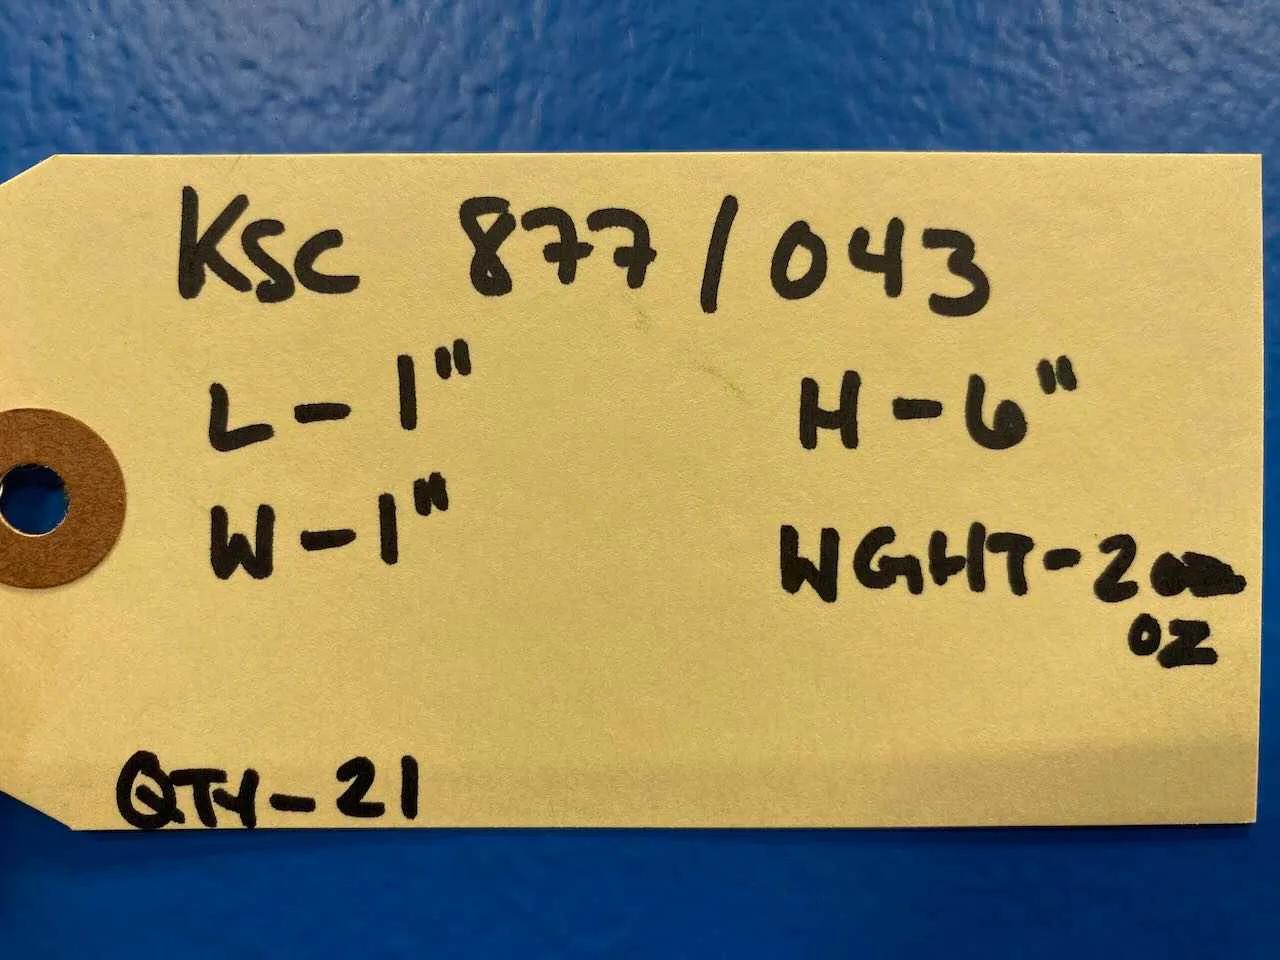 KSC 877/043
L-1" H-6"
W-1" WGHT-2
OZ
QTY-21